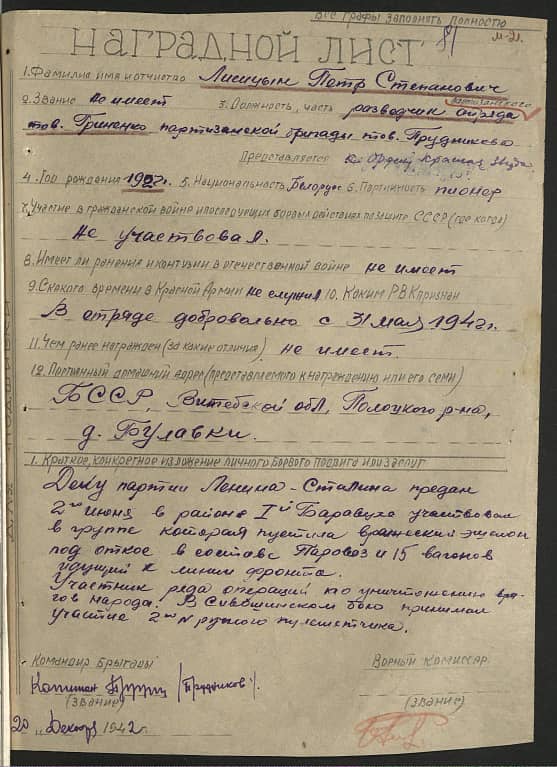 Все графы заполнять полностью
НАГРАДНОЙ ЛИСТ
81
1. Фамилия имя и отчество Лисицын Петр Степанович
2. Звание не имеет 3. Должность, часть разведчик партизанского отряда
тов. Гриненко партизанской бригады тов. Прудникова
Представляется к Ордену Красная Звезда
4. Год рождения 1927г. 5. Национальность Белорус 6. Партийность пионер
7. Участие в гражданской войне и последующих боевых действиях по защите СССР (где когда)
Не участвовал.
8. Имеет ли ранения и контузии в отечественной войне не имеет
9. С какого времени в Красной Армии не служил 10. Каким РВК призван
В отряде добровольно с 31 мая 1942г.
11. Чем ранее награжден (за какие отличия) не имеет.
12. Постоянный домашний адрес (представляемого к награждению или его семьи)
БССР, Витебской обл, Полоцкого р-на,
д. Булавки.
1. Краткое, конкретное изложение личного боевого подвига или заслуг
Делу партии Ленина-Сталина предан
2го июня в районе 1й Боровухи участвовал
в группе которая пустила вражеский эшелон
под откос в составе Паровоз и 15 вагонов
идущий к линии фронта.
Участник ряда операций по уничтожению вра-
гов народа. В бою принимал
участие 2м N ручного пулеметчика.
Командир Бригады
Военный Комиссар
Капитан /Прудников/.
(звание)
(звание)
20 „Декабря 1942г.